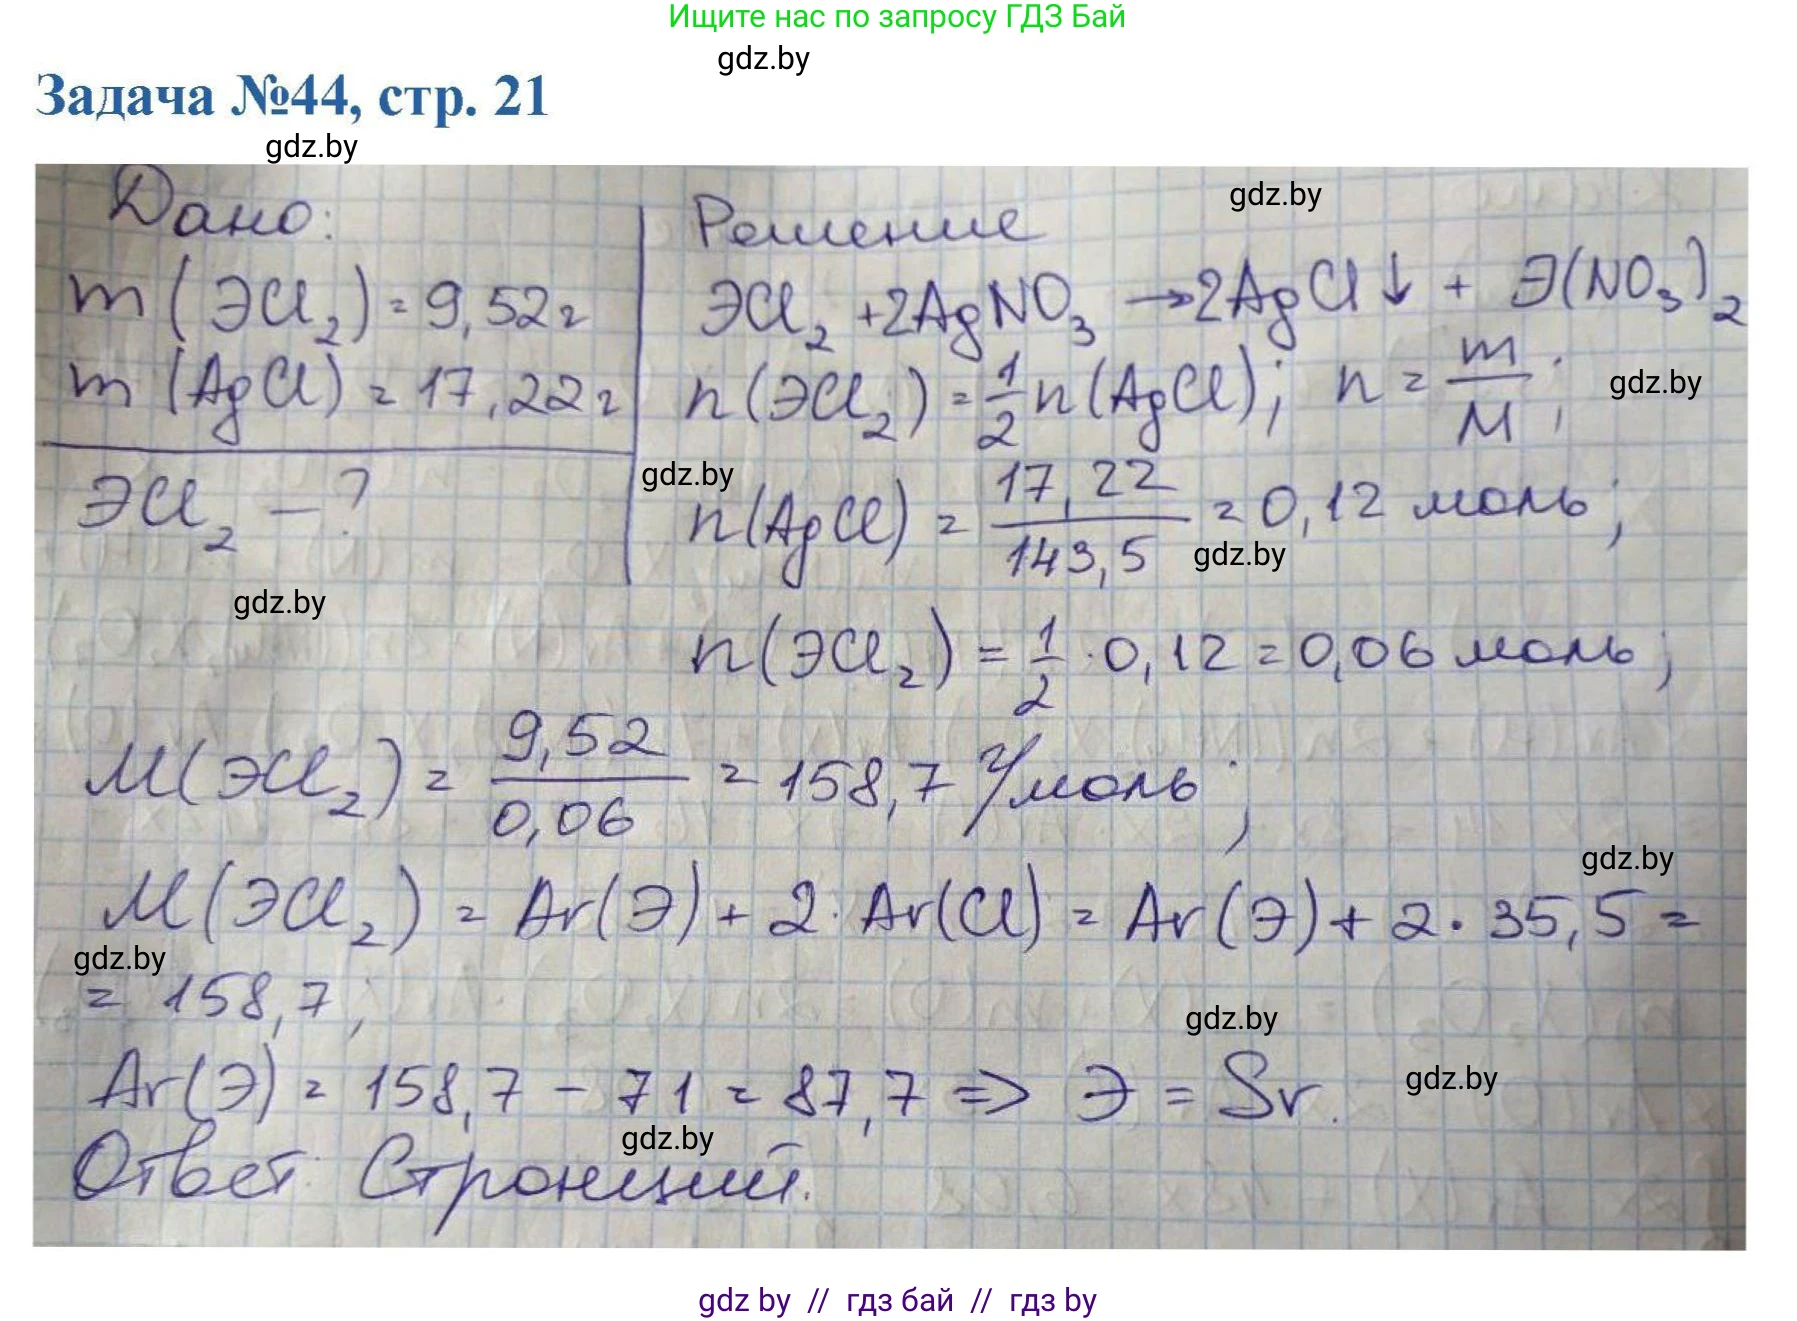 Ищите нас по запросу ГДЗ Бай
gdz.by
Задача №44, стр. 21
gdz.by
Дано:
m(ЭCl₂) = 9,52 г
m(AgCl) = 17,22 г
ЭCl₂ - ?
gdz.by
Решение
gdz.by
ЭCl₂ + 2AgNO₃ → 2AgCl↓ + Э(NO₃)₂
n(ЭCl₂) = 1/2 n(AgCl); n = m/M;
gdz.by
gdz.by
n(AgCl) = 17,22/143,5 = 0,12 моль;
gdz.by
n(ЭCl₂) = 1/2 · 0,12 = 0,06 моль;
M(ЭCl₂) = 9,52/0,06 = 158,7 г/моль;
gdz.by
M(ЭCl₂) = Ar(Э) + 2 · Ar(Cl) = Ar(Э) + 2 · 35,5 =
gdz.by
= 158,7;
gdz.by
Ar(Э) = 158,7 - 71 = 87,7 => Э = Sr.
gdz.by
gdz.by
Ответ: Стронций.
gdz by // гдз бай // гдз by